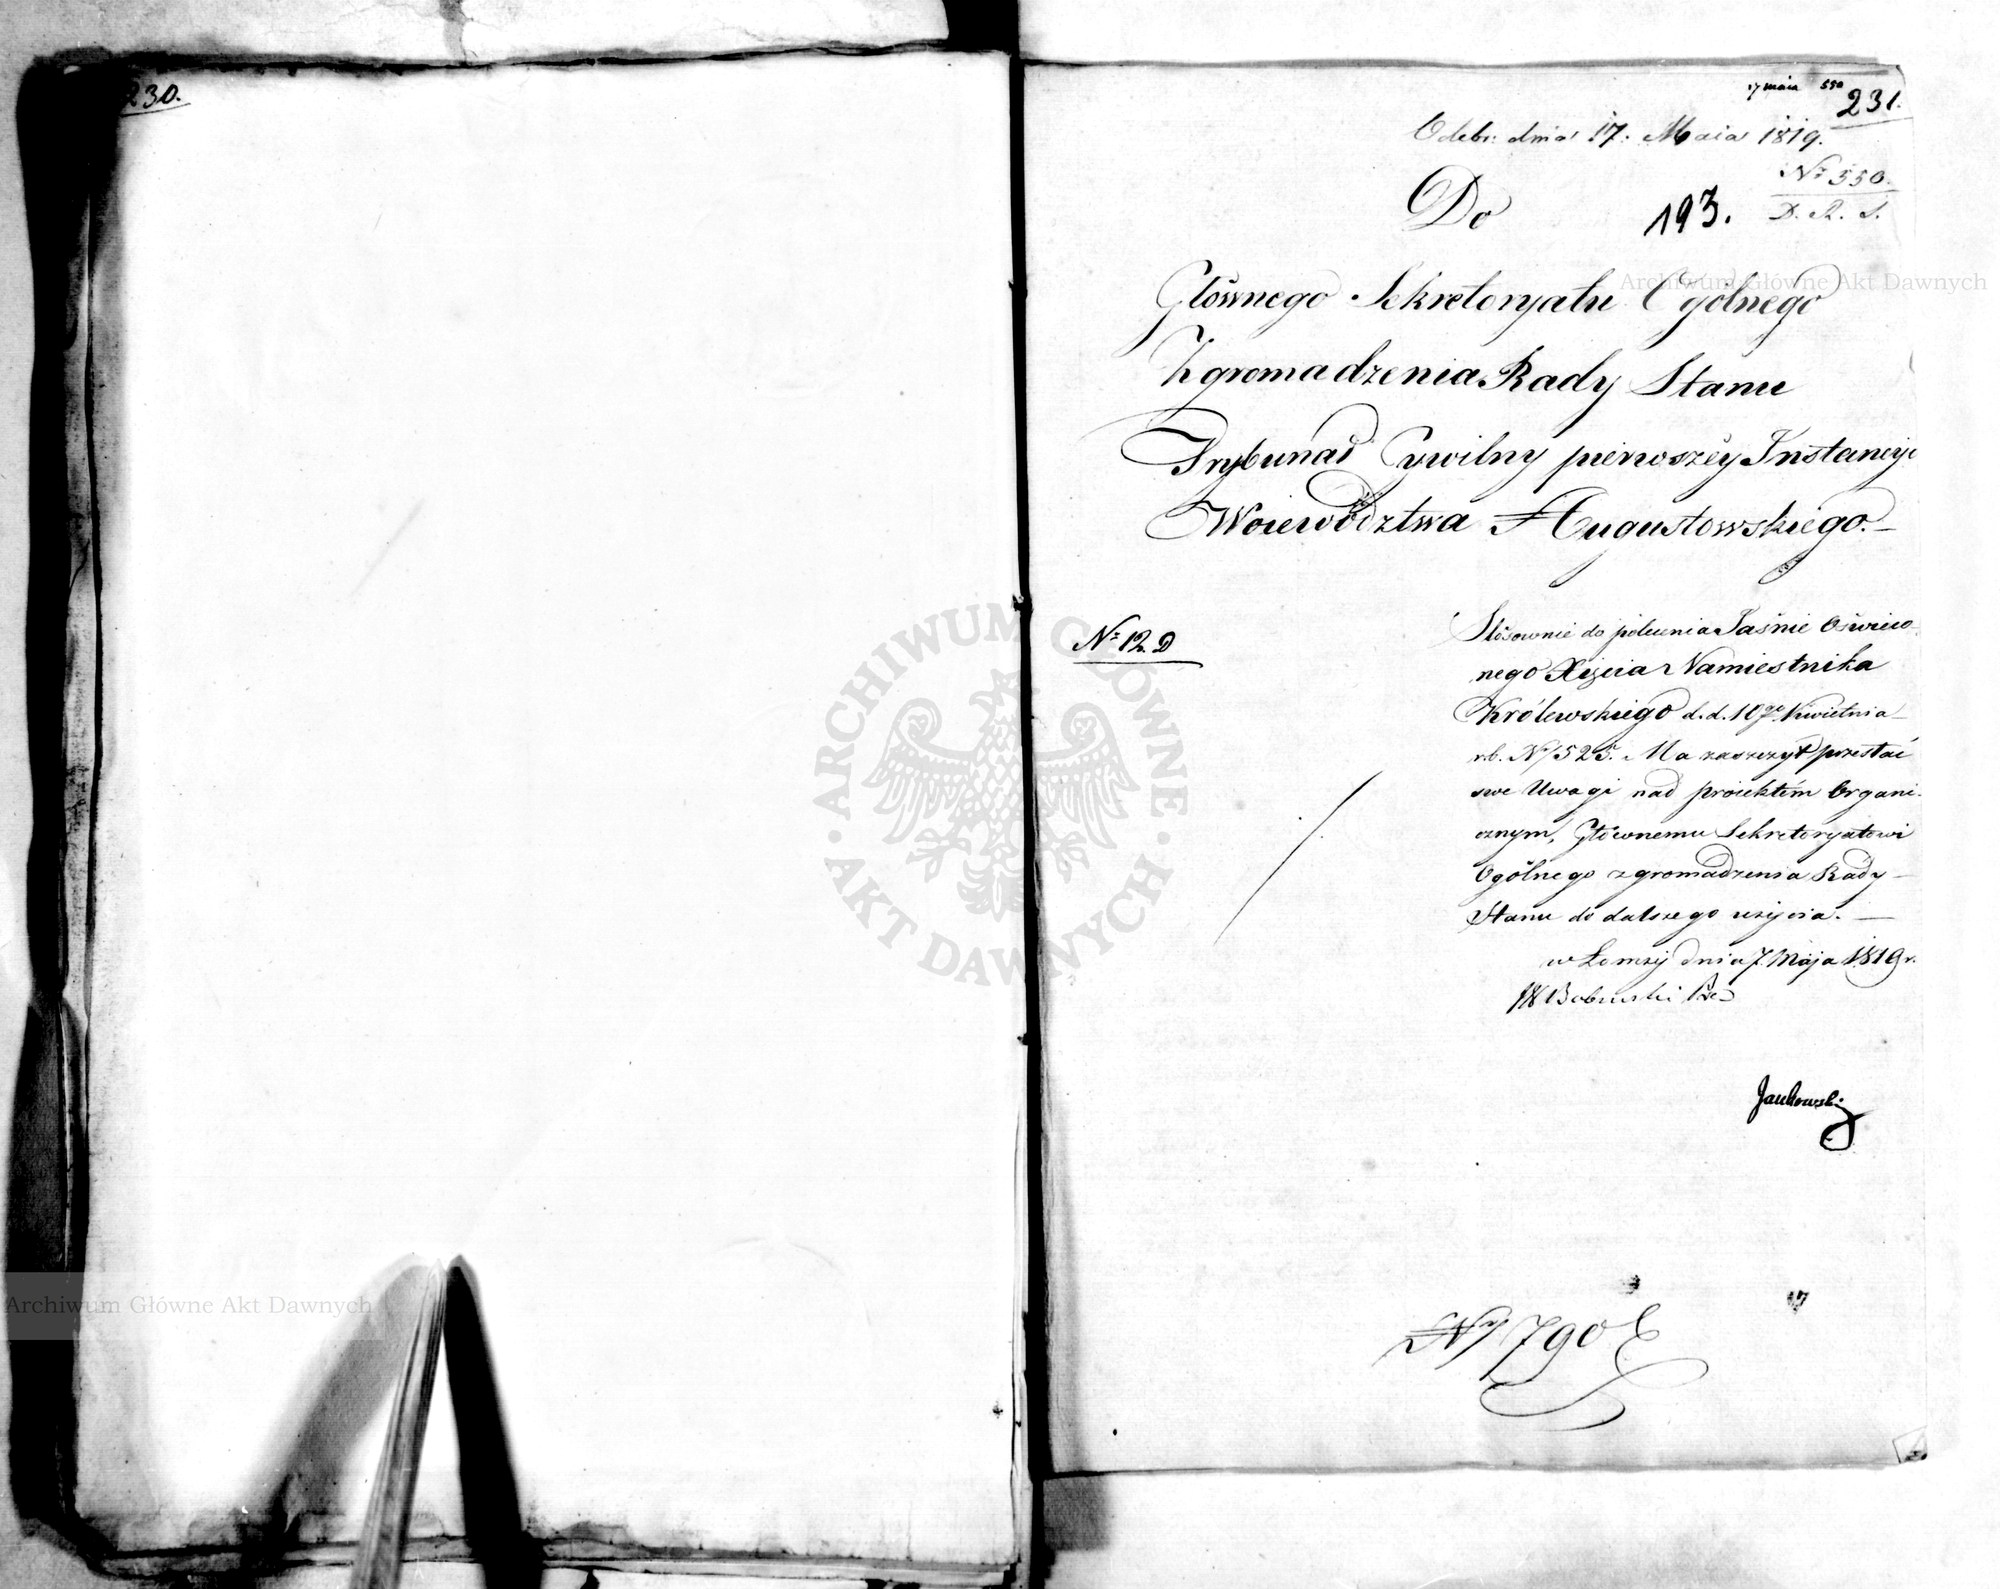 230.
17 maia 550
231.
Odebr: dnia 17. Maia 1819.
Nr 550.
D. R. S.
Do
193.
Głównego Sekretoryatu Ogólnego
Zgromadzenia Rady Stanu
Trybunał Cywilny pierwszey Instancyi
Woiewództwa Augustowskiego.
Nr 12. D
Stosownie do polecenia Jaśnie Oświeco-
nego Xięcia Namiestnika
Królewskiego d.d. 10go Kwietnia
r.b. Nr 525. Ma zaszczyt przesłać
swe Uwagi nad proiektem Organi-
cznym, Głównemu Sekretoryatowi
Ogólnego zgromadzenia Rady
Stanu do dalszego użycia.
w Łomży dnia 7 Maja 1819 r.
Jankowski
Nr 790
ARCHIWUM GŁÓWNE
AKT DAWNYCH
Archiwum Główne Akt Dawnych
Archiwum Główne Akt Dawnych